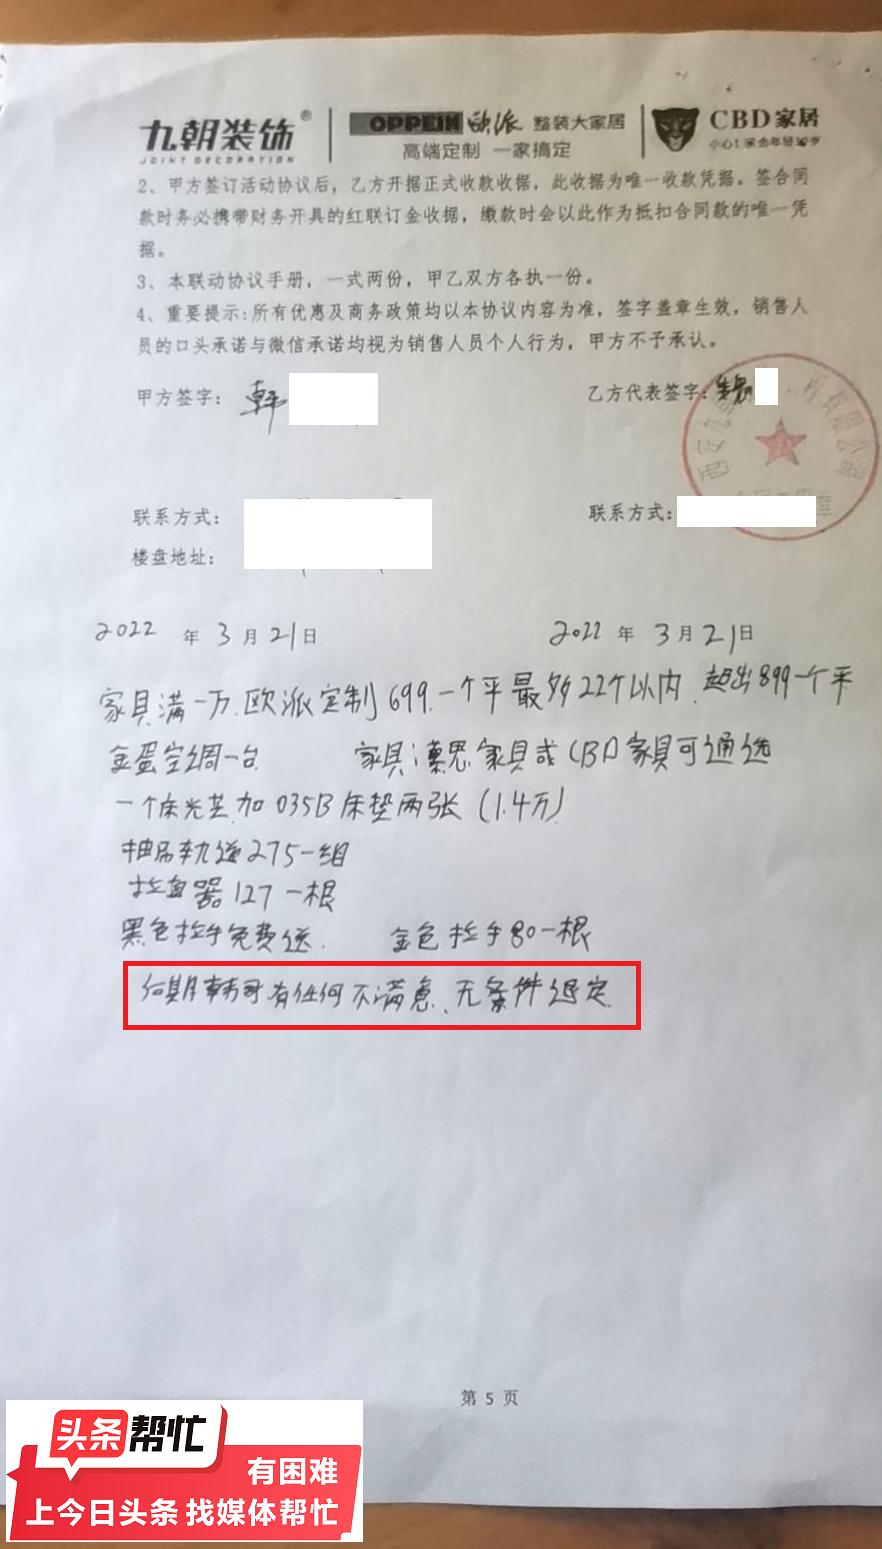 九朝装饰® OPPEIN 欧派 整装大家居 CBD家居
JOINT DECORATION 高端定制 一家搞定
2、甲方签订活动协议后，乙方开据正式收款收据，此收据为唯一收款凭据。签合同
款时务必携带财务开具的红联订金收据，缴款时会以此作为抵扣合同款的唯一凭
据。
3、本联动协议手册，一式两份，甲乙双方各执一份。
4、重要提示:所有优惠及商务政策均以本协议内容为准，签字盖章生效，销售人
员的口头承诺与微信承诺均视为销售人员个人行为，甲方不予承认。
甲方签字： 韩 乙方代表签字：
西安九 有限公司
联系方式： 联系方式：
楼盘地址：
2022 年 3 月 21 日 2022 年 3 月 21 日
家具满一万.欧派定制699.一个平最多22个以内.超出899一个平
金蛋空调一台 家具: 家具或CBD家具可通选
一个床 加035B床垫两张(1.4万)
抽屉轨道275一组
拉直器127一根
黑色拉手免费送. 金色拉手80一根
韩哥有任何不满意、无条件退定.
第 5 页
头条帮忙
有困难
上今日头条 找媒体帮忙